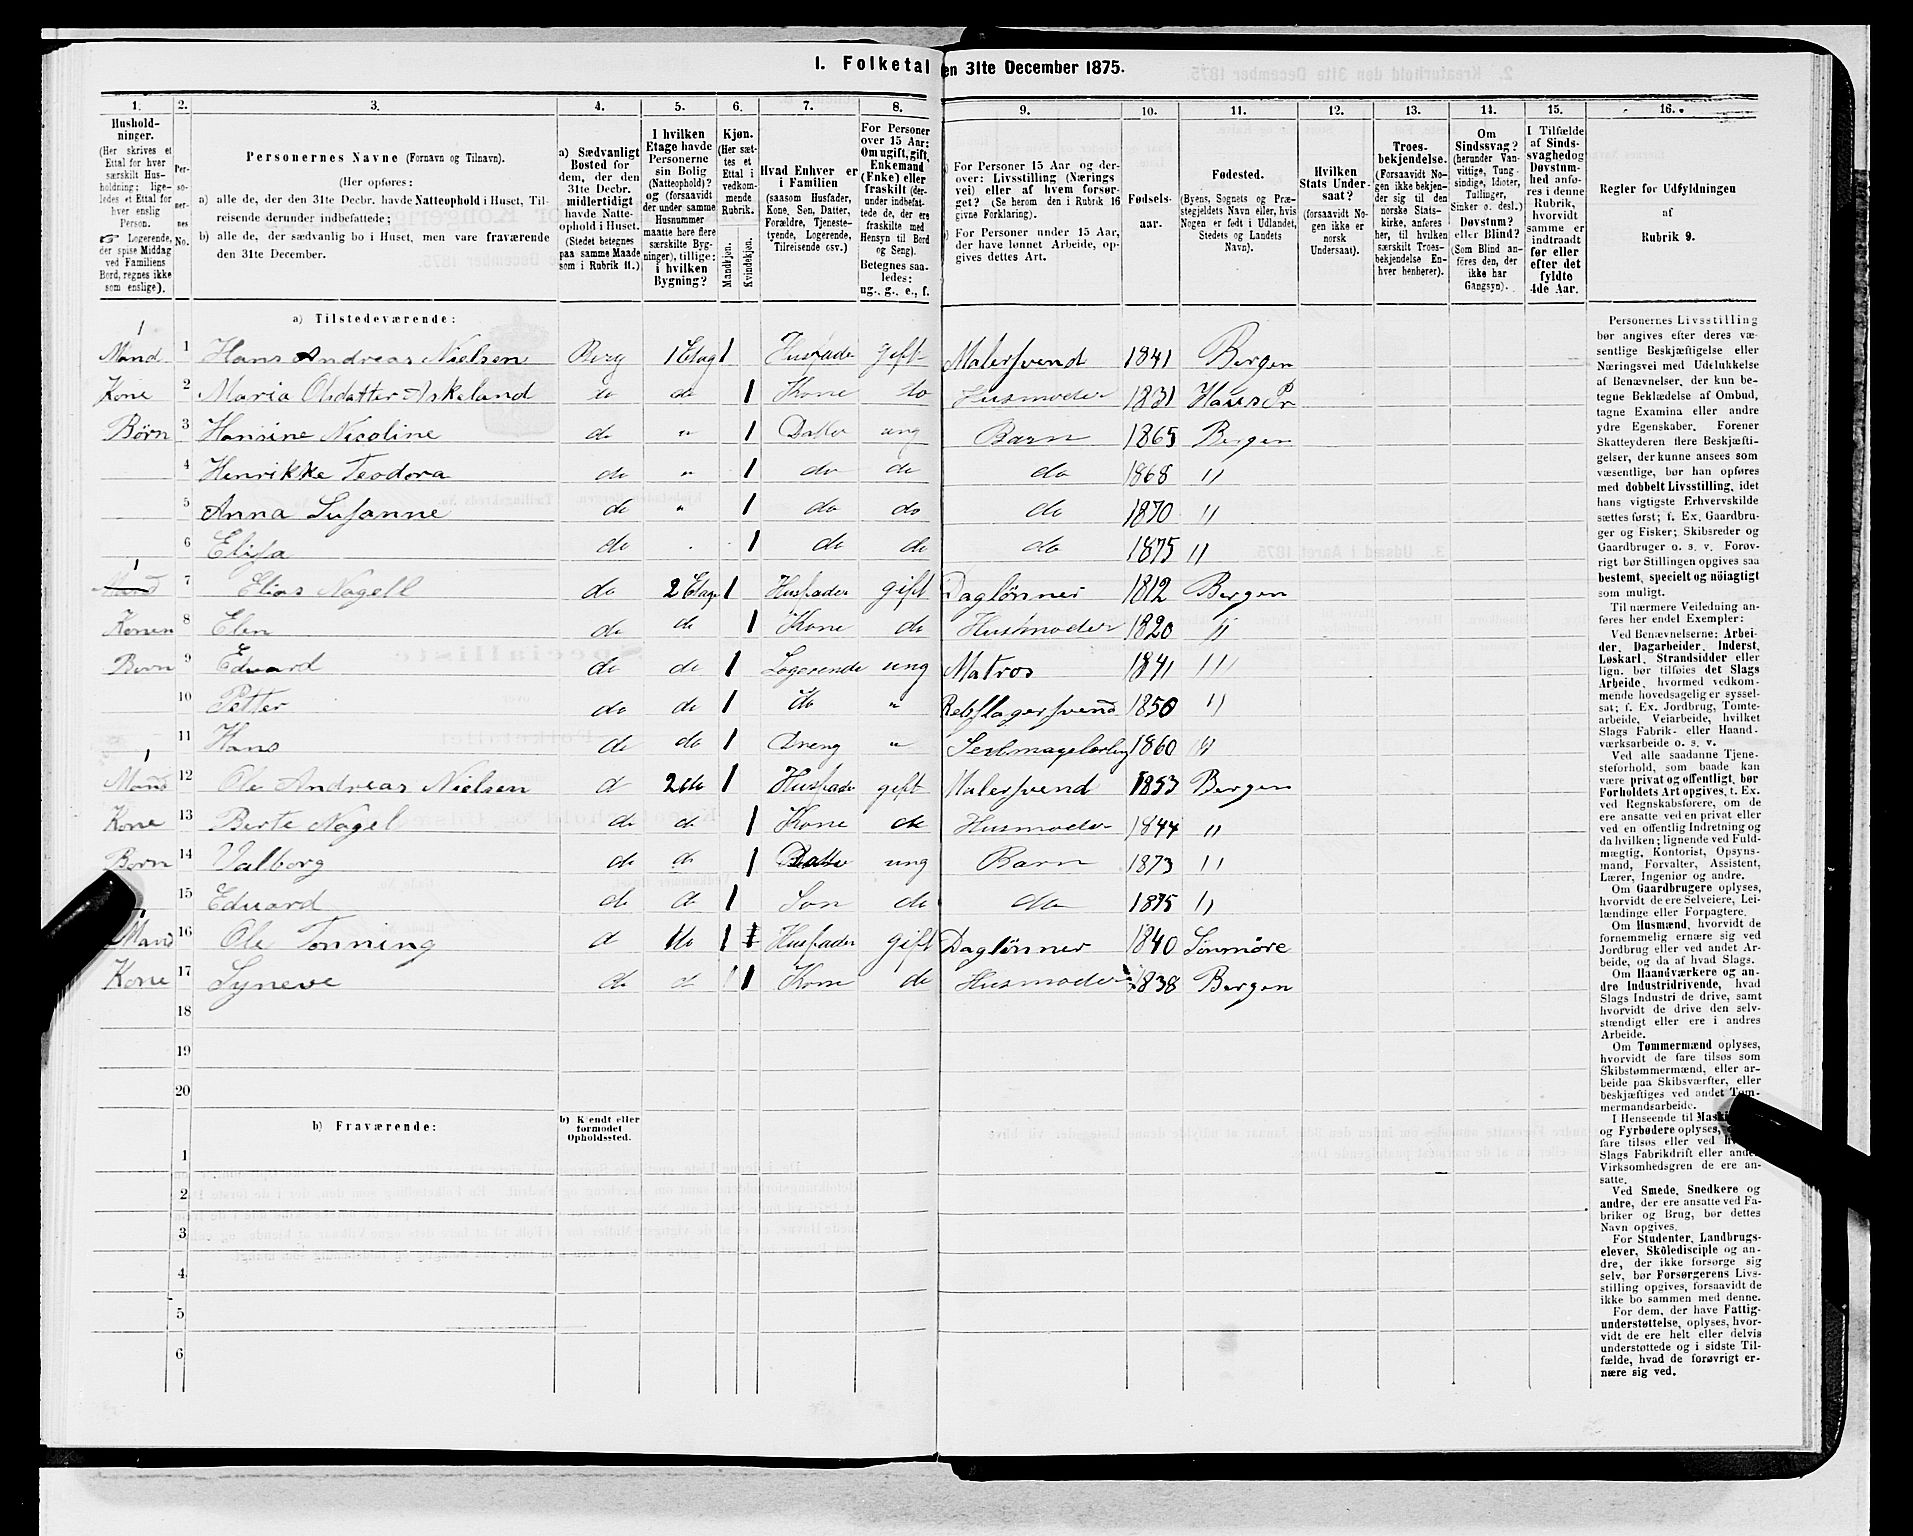 I. Folketal den 31te December 1875.
1. 2. 3. 4. 5. 6. 7. 8. 9. 10. 11. 12. 13. 14. 15. 16.
Hushold-
ninger.
(Her skrives et
Ettal for hver
særskilt Hus-
holdning; lige-
ledes et Ettal for
hver enslig
Person.
☞ Logerende,
der spise Middag
ved Familiens
Bord, regnes ikke
som enslige).
Per-
so-
ner-
nes
No.
Personernes Navne (Fornavn og Tilnavn).
(Her opføres:
a) alle de, der den 31te Decbr. havde Natteophold i Huset, Til-
reisende derunder indbefattede;
b) alle de, der sædvanlig bo i Huset, men vare fraværende
den 31te December.
a) Sædvanligt
Bosted for
dem, der den
31te Decbr.
midlertidigt
havde Natte-
ophold i Huset.
(Stedet betegnes
paa samme Maade
som i Rubrik 11.)
I hvilken
Etage havde
Personerne
sin Bolig
(Natteophold)?
og (forsaavidt
der under samme
Husnummer
maatte høre flere
særskilte Byg-
ninger), tillige:
i hvilken
Bygning?
Kjøn.
(Her sæt-
tes et
Ettal i
vedkom-
mende
Rubrik.
Mandkjøn.
Kvindekjøn.
Hvad Enhver er
i Familien
(saasom Husfader,
Kone, Søn, Datter,
Forældre, Tjeneste-
tyende, Logerende,
Tilreisende osv.)
For Personer
over 15 Aar:
Om ugift, gift,
Enkemand
(Enke) eller
fraskilt (der-
under indbefat-
tede de, der ere
fraskilte med
Hensyn til Bord
og Seng).
Betegnes saa-
ledes:
ug., g., e., f.
For Personer 15 Aar og der-
over: Livsstilling (Nærings
vei) eller af hvem forsør-
get? (Se herom den i Rubrik 16
givne Forklaring).
For Personer under 15 Aar,
der have lønnet Arbeide, op-
gives dettes Art.
Fødsels-
aar.
Fødested.
(Byens, Sognets og Præ-
stegjeldets Navn eller, hvis
Nogen er født i Udlandet,
Stedets og Landets
Navn).
Hvilken
Stats Under-
saat?
(forsaavidt No-
gen ikke er
norsk
Undersaat).
Troes-
bekjendelse.
(Forsaavidt No-
gen ikke bekjen-
der sig til den
norske Stats-
kirke, anføres
her, til hvilken
særskilt Troes-
bekjendelse En-
hver henhører).
Om
Sindssvag?
(herunder Van-
vittige, Tung-
sindige, Idioter,
Tullinger,
Sinker o. desl.)
Døvstum?
eller Blind?
(Som Blind an-
føres den, der
ikke har
Gangsyn).
I Tilfælde
af Sinds-
svaghed og
Døvstum-
hed anfø-
res i denne
Rubrik,
hvorvidt
samme er
indtraadt
før eller
efter det
fyldte
4de Aar.
Regler for Udfyldningen
af
Rubrik 9.
a) Tilstedeværende:
1
Mand 1 Hans Andreas Nielsen Berg 1 Etag 1 Husfader gift Malersvend 1841 Bergen
Kone 2 Maria Olsdatter Askeland do do 1 Kone do Husmoder 1831 Haus Pr
Børn 3 Hansine Nicoline do " 1 Datter ung Barn 1865 Bergen
4 Henrikke Teodora do " 1 do do do 1868 "
5 Anna Susanne do " 1 do do do 1870 "
6 Elisa do 1 do do do 1875 "
1
Mand 7 Elias Nagell do 2 Etage 1 Husfader gift Daglønner 1812 Bergen
Konen 8 Elen do do 1 Kone do Husmoder 1820 "
Børn 9 Eduard do do 1 Logerende ung Matros 1841 "
10 Petter do do 1 do " Rebslagersvend 1850 "
11 Hans do do 1 Dreng " 1860
1
Mand 12 Ole Andreas Nielsen d 2 do 1 Husfader gift Malersvend 1853 Bergen
Kone 13 Berte Nagel do d 1 Kone do Husmoder 1844 "
Born 14 Valborg do d 1 Datter ung Barn 1873 "
15 Eduard do d 1 Søn do do 1875 "
1
Mand 16 Ole Tonning d 1 do 1 Husfader gift Daglønner 1840 Sønmöre
Kone 17 Syneve do d 1 Kone do Husmoder 1838 Bergen
18
19
20
b) Fraværende:
b) Kjendt eller
formodet
Opholdssted.
1
2
3
4
5
6
Personernes Livsstilling
bør angives efter deres væ-
sentlige Beskjæftigelse eller
Næringsvei med Udelukkelse
af Benævnelser, der kun be-
tegne Beklædelse af Ombud,
tagne Examina eller andre
ydre Egenskaber. Forener
Skatteyderen flere Beskjæfti-
gelser, der kunne ansees som
væsentlige, bør han opføres
med dobbelt Livsstilling, idet
hans vigtigste Erhvervskilde
sættes først; f. Ex. Gaardbru-
ger og Fisker; Skibsreder og
Gaardbruger o. s. v. Forøv-
rigt bør Stillingen opgives saa
bestemt, specielt og nöiagtigt
som muligt.
Til nærmere Veiledning an-
føres her endel Exempler:
Ved Benævnelserne: Arbei-
der, Dagarbeider, Inderst,
Løskarl, Strandsidder eller
lign. bør tilføies det Slags
Arbeide, hvormed vedkom-
mende hovedsagelig er syssel-
sat; f. Ex. Jordbrug, Tomte-
arbeide, Veiarbeide, hvilket
Slags Fabrik- eller Haand-
værksarbeide o. s. v.
Ved alle saadanne Tjene-
steforhold, som baade kan
være privat og offentligt, bør
Forholdets Art opgives, f. Ex.
ved Regnskabsførere, om de
ere ansatte ved en privat eller
ved en offentlig Indretning og
da hvilken; lignende ved Fuld-
mægtig, Kontorist, Opsyns-
mand, Forvalter, Assistent,
Lærer, Ingeniør og andre.
Om Gaardbrugere oplyses,
hvorvidt de ere Selveiere, Lei-
lændinge eller Forpagtere.
Om Husmænd, hvorvidt de
fornemmelig ernære sig ved
Jordbrug eller ved andet Ar-
beide, og da af hvad Slags.
Om Haandværkere og an-
dre Industridrivende, hvad
Slags Industri de drive, samt
hvorvidt de drive den selv-
stændigt eller ere i andres
Arbeide.
Om Tømmermænd oplyses,
hvorvidt de fare tilsøs som
Skibstømmermænd, eller ar-
beide paa Skibsværfter, eller
beskjæftiges ved andet Tøm-
mermandsarbeide.
I Henseende til
og Fyrbødere oplyses,
fare tilsøs eller ved
Slags Fabrikdrift eller
Virksomhedsgren de ere an-
satte.
Ved Smede, Snedkere og
andre, der ere ansatte ved Fa-
briker og Brug, bør dettes
Navn opgives.
For Studenter, Landbrugs-
elever, Skoledisciple og an-
dre, der ikke forsørge sig
selv, bør Forsørgerens Livs-
stilling opgives, forsaavidt de
ikke bo sammen med denne.
For dem, der have Fattig-
understøttelse, oplyses, hvor-
vidt de ere helt eller delvis
understøttede og i sidste Til-
fælde, hvad de forøvrigt er-
nære sig ved.